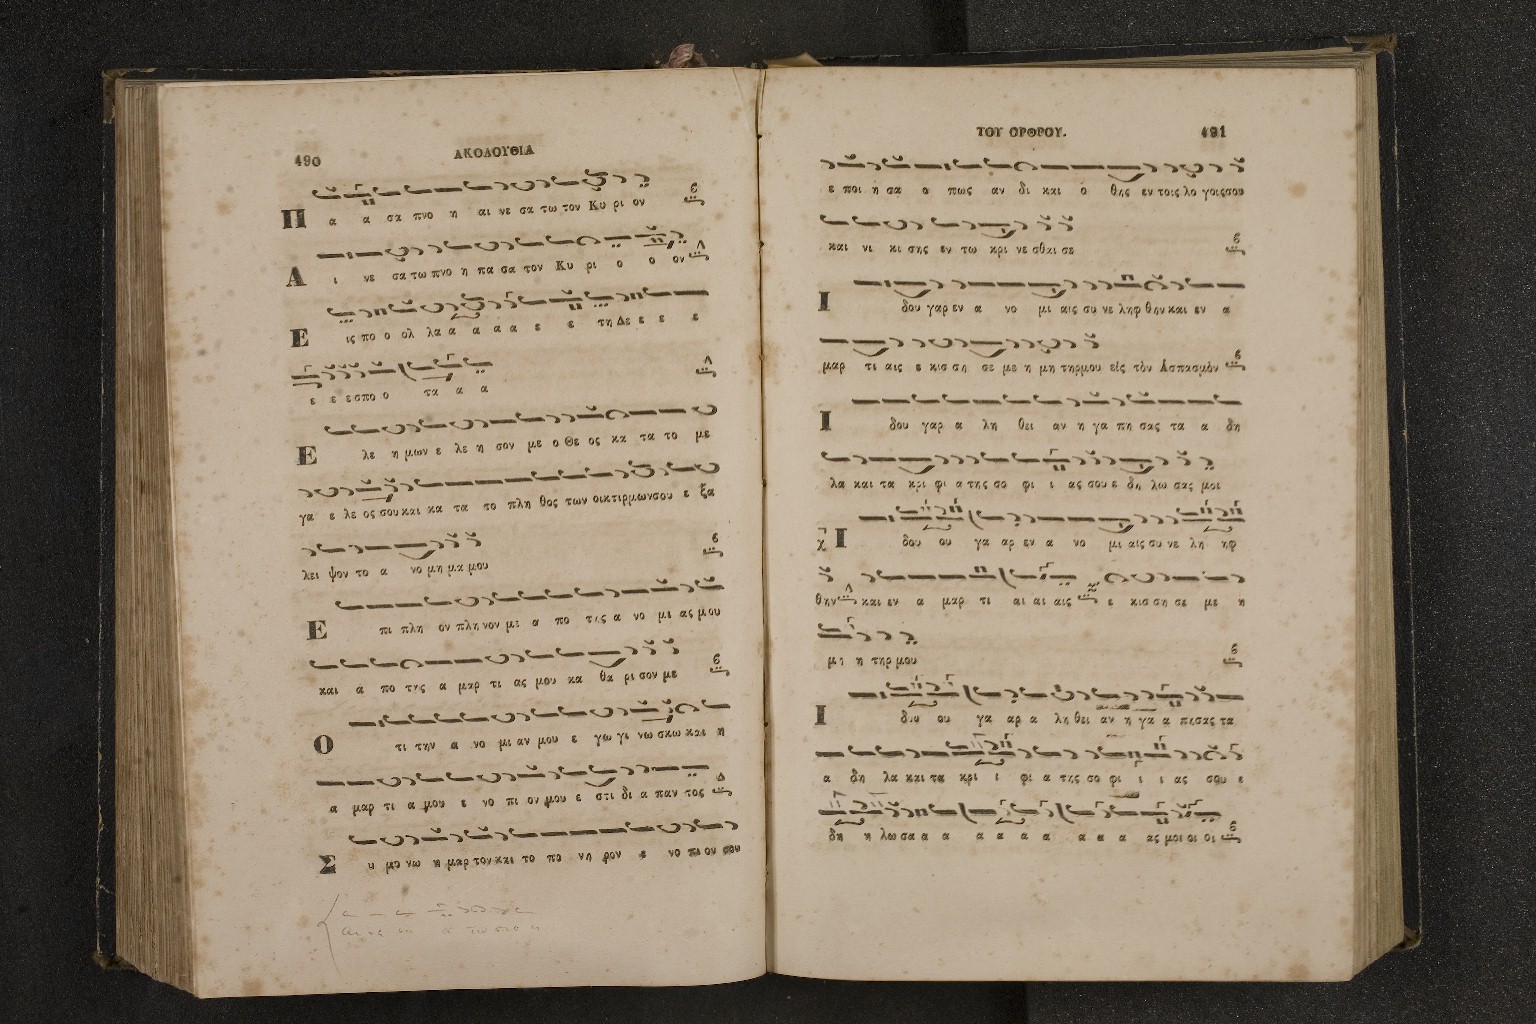 490
ΑΚΟΛΟΥΘΙΑ
Π α α σα πνο η αι νε σα τω τον Κυ ρι ον
Α ι νε σα τω πνο η πα σα τον Κυ ρι ο ο ον
Ε ις πο ο ολ λα α α α α ε ε τη Δε ε ε ε
ε ε εσπο ο τα α α
Ε λε η μων ε λε η σον με ο Θε ος κα τα το με
γα ε λε ος σου και κα τα το πλη θος των οικτιρμωνσου ε ξα
λει ψον το α νο μη μα μου
Ε πι πλη ον πλη νον με α πο της α νο μι ας μου
και α πο της α μαρ τι ας μου κα θα ρι σον με
Ο τι την α νο μι αν μου ε γω γι νω σκω και η
α μαρ τι α μου ε νο πι ον μου ε στι δι α παν τος
Σ η μο νω η μαρ τον και το πο νη ρον ε νο πι ον σου
ΤΟΥ ΟΡΘΡΟΥ.
491
ε ποι η σα ο πως αν δι και ο θης εν τοις λο γοιςσου
και νι κι σης εν τω κρι νε σθαι σε
Ι δου γαρ εν α νο μι αις συ νε ληφ θην και εν α
μαρ τι αις ε κισ ση σε με η μη τηρμου είς τὸν Ασπασμὸν
Ι δου γαρ α λη θει αν η γα πη σας τα α δη
λα και τα κρι φι α της σο φι ι ας σου ε δη λω σας μοι
χ Ι δου ου γα αρ εν α νο μι αις συ νε λη ηφ
θην και εν α μαρ τι αι αι αις ε κισ ση σε με η
μι η τηρ μου
Ι δου ου γα αρ α λη θει αν η γα α πησας τα
α δη λα και τα κρι ι φι α της σο φι ι ι ας σου ε
δη η λω σα α α α α α α α α α ας μοι οι οι